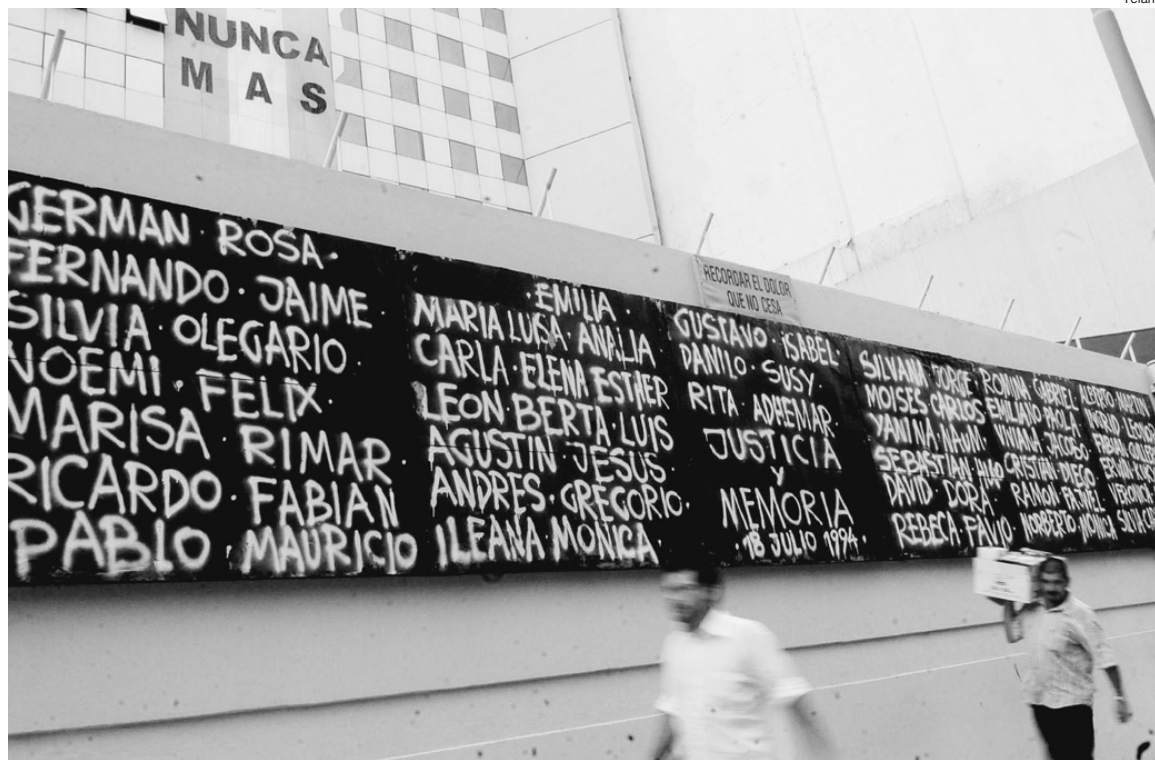 NUNCA
MAS
RECORDAR EL DOLOR
QUE NO CESA
GERMAN · ROSA ·
FERNANDO · JAIME ·
SILVIA · OLEGARIO ·
NOEMI · FELIX ·
MARISA · RIMAR ·
RICARDO · FABIAN
PABLO · MAURICIO
· EMILIA ·
MARIA LUISA · ANALIA
CARLA · ELENA ESTHER
LEON · BERTA · LUIS
AGUSTIN · JESUS ·
ANDRES · GREGORIO ·
ILEANA MONICA ·
GUSTAVO · ISABEL ·
DANILO · SUSY ·
RITA · ADHEMAR ·
JUSTICIA
y
MEMORIA
· 18 JULIO 1994 ·
SILVANA JORGE
MOISES CARLOS
YANINA · NAUM
SEBASTIAN · HUGO
DAVID · DORA
REBECA · FAVIO
ROMINA GABRIEL
EMILIANO PAOLA
VIVIANA JACOBO
CRISTIAN DIEGO
RAMON · RAFAEL
NORBERTO MONICA
ALBERTO MARTIN
INGRID
VERONICA